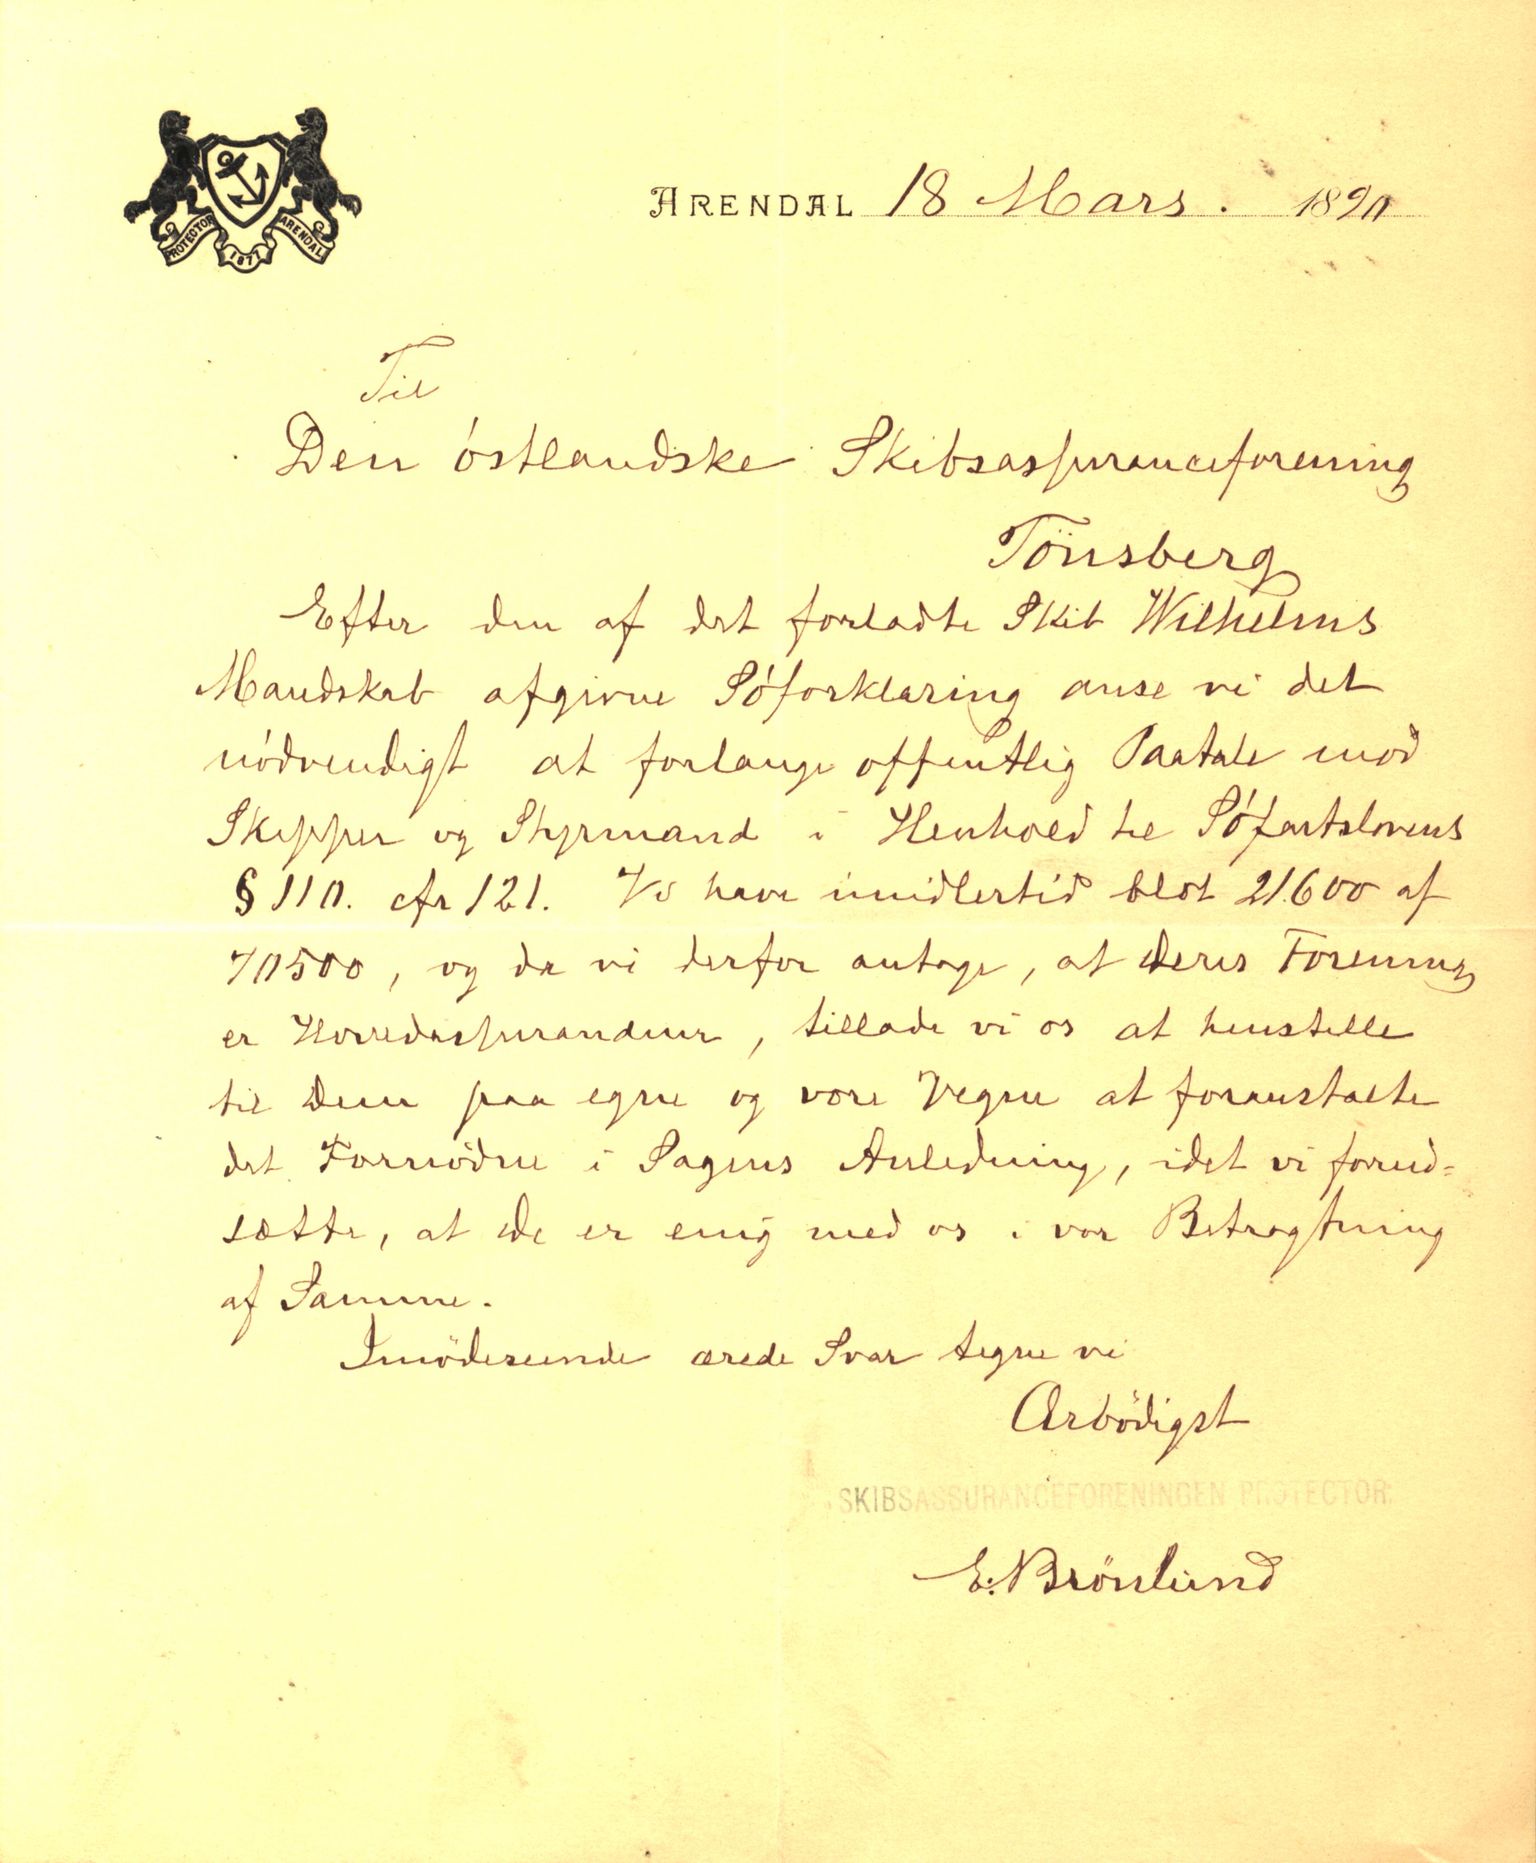 PROTECTOR 1877 ARENDAL
ARENDAL 18 Mars. 1890
Til
Den östlandske Skibsassuranceforening
Tönsberg
Efter den af det forladte Skib Wilhelms
Mandskab afgivne Söforklaring anse vi det
nödvendigt at forlange offentlig Paatale mod
Skipper og Styrmand i Henhold til Söfartslovens
§ 110. cfr 121. Vi have imidlertid blot 21.600 af
70500, og da vi derfor antage, at Deres Forening
er Hovedassurandeur, tillade vi os at henstille
til Dem paa egne og vore Vegne at foranstalte
det Fornödne i Sagens Anledning, idet vi forud=
sætte, at De er enig med os i vor Betragtning
af Samme.
Imödeseende ærede Svar tegne vi
Ærbödigst
SKIBSASSURANCEFORENINGEN PROTECTOR.
E. Brönlund